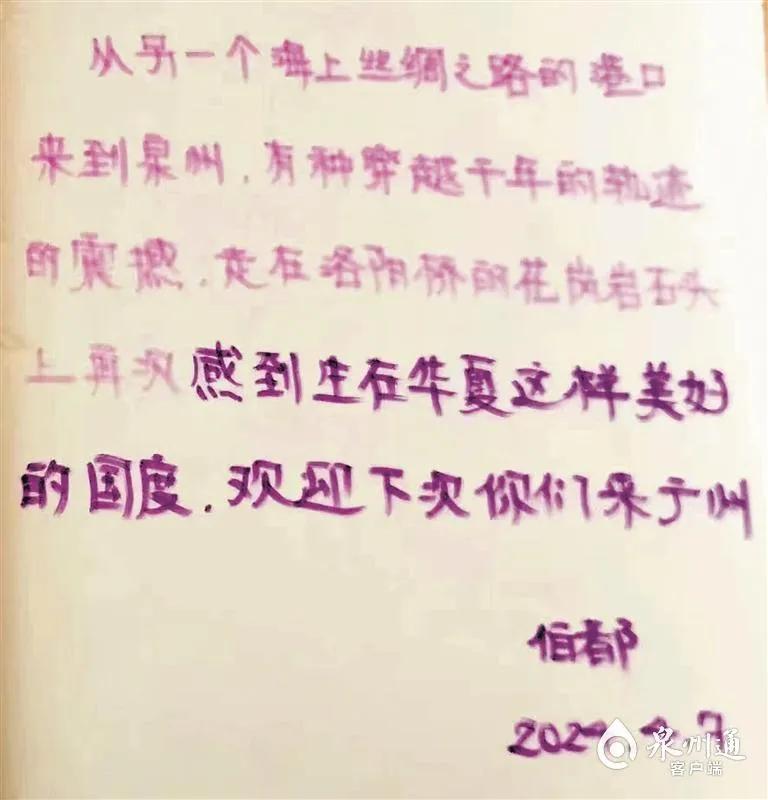 从另一个海上丝绸之路的港口
来到泉州,有种穿越千年的轨迹
的震撼,走在洛阳桥的花岗岩石头
上再次感到生在华夏这样美好
的国度,欢迎下次你们来广州
伯都
2024.4.7
泉州通
客户端